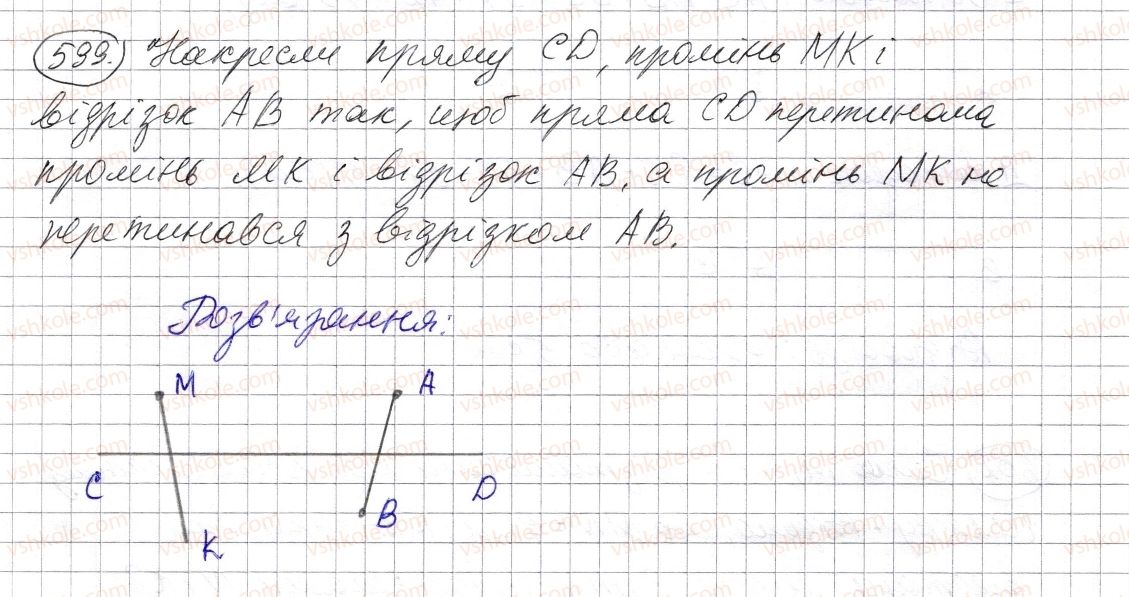 599. Накресли пряму CD, промінь MK і
відрізок AB так, щоб пряма CD перетинала
промінь MK і відрізок AB, а промінь MK не
перетинався з відрізком AB.
Розв'язання:
M A
C D
B
K
vshkole.com